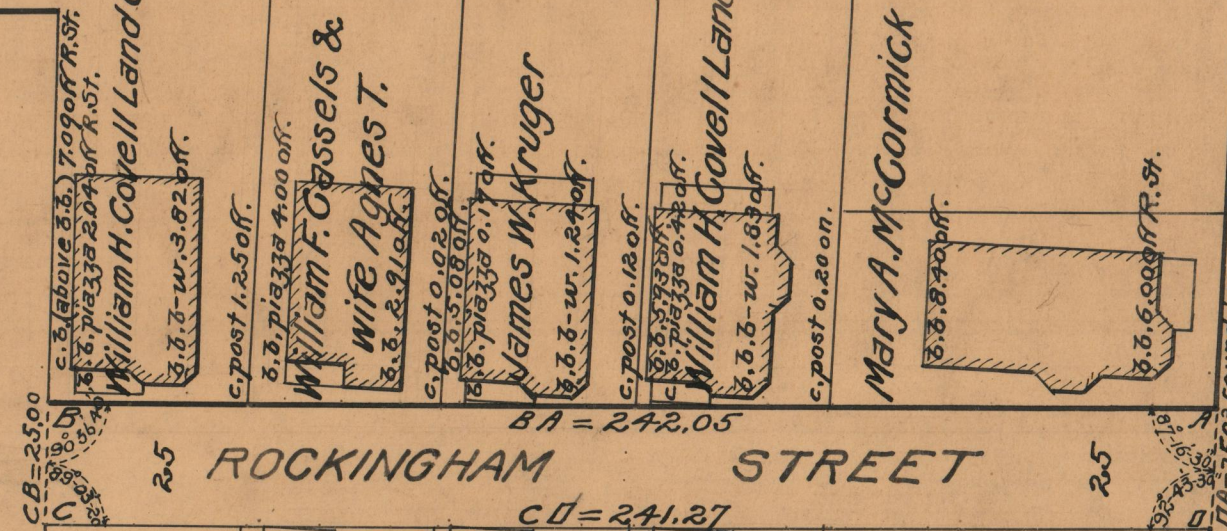 c. b. (above b.b.) 7.09 off R. St.
b. b. piazza 2.04 off R. St.
William H. Covell Land
b.b.b-w. 3.82 off.
c. post 1.25 off.
b.b. piazza 4.00 off.
William F. Cassels &
Wife Agnes T.
b. b. 2.91 off.
c. post 0.02 off.
b. b. 5.08 off.
c. b. piazza 0.17 off.
James W. Kruger
b.b.b-w. 1.24 off.
c. post 0.12 off.
b.b. 5.93 off.
c. b. piazza 0.42 off.
William H. Covell Land
b.b.b-w. 1.83 off.
c. post 0.20 on.
Mary A. McCormick
b.b. 8.40 off.
b.b. 6.00 off R. St.
BA = 242.05
B
A
CB = 25.00
25
ROCKINGHAM STREET
25
C
CD = 241.27
D